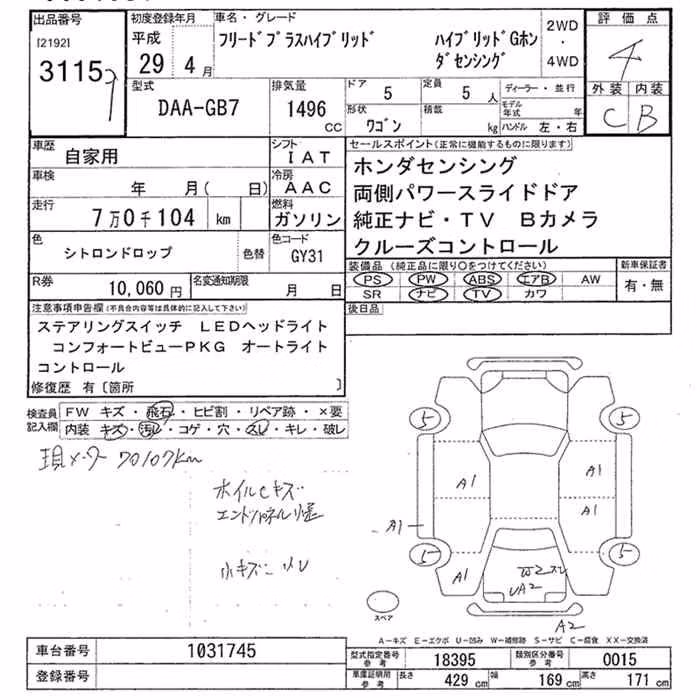 出品番号 初度登録年月 車名・グレード 評価点
[2192] 平成 フリードプラスハイブリッド ハイブリッドGホン 2WD ・ 4WD 4
3115 29 4月 ダセンシング
型式 排気量 ドア 5 定員 5人 ディーラー・並行 外装 内装
DAA-GB7 1496 CC 形状 ワゴン 積載 kg モデル年式 年 C B
ハンドル 左・右
車歴 自家用 シフト IAT セールスポイント(正常に機能するものに限ります)
車検 年 月( 日) 冷房 AAC ホンダセンシング
両側パワースライドドア
走行 7万0千104 km 燃料 ガソリン 純正ナビ・TV Bカメラ
色 シトロンドロップ 色替 色コード GY31 クルーズコントロール
R券 10,060円 名変通知期限 月 日 装備品(純正品に限り○をつけてください) 新車保証書
PS PW ABS エアB AW 有・無
SR ナビ TV カワ
注意事項申告欄(不具合内容等は具体的に記入して下さい) 後日品
ステアリングスイッチ LEDヘッドライト
コンフォートビューPKG オートライト
コントロール
修復歴 有〔箇所 〕
検査員記入欄 FW キズ・飛石・ヒビ割・リペア跡・×要
内装 キズ・汚レ・コゲ・穴・スレ・キレ・破レ
現メーター 70107km
ホイルCキズ
小キズ
5 5
A1 A1
A1 A1
A1
5 5
A1 W2
UA2
スペア
A2
A-キズ E-エクボ U-凹み W-補修跡 S-サビ C-腐食 XX-交換済
車台番号 1031745 型式指定番号 参考 18395 類別区分番号 参考 0015
登録番号 車庫証明用 参考 長さ 429cm 幅 169cm 高さ 171cm